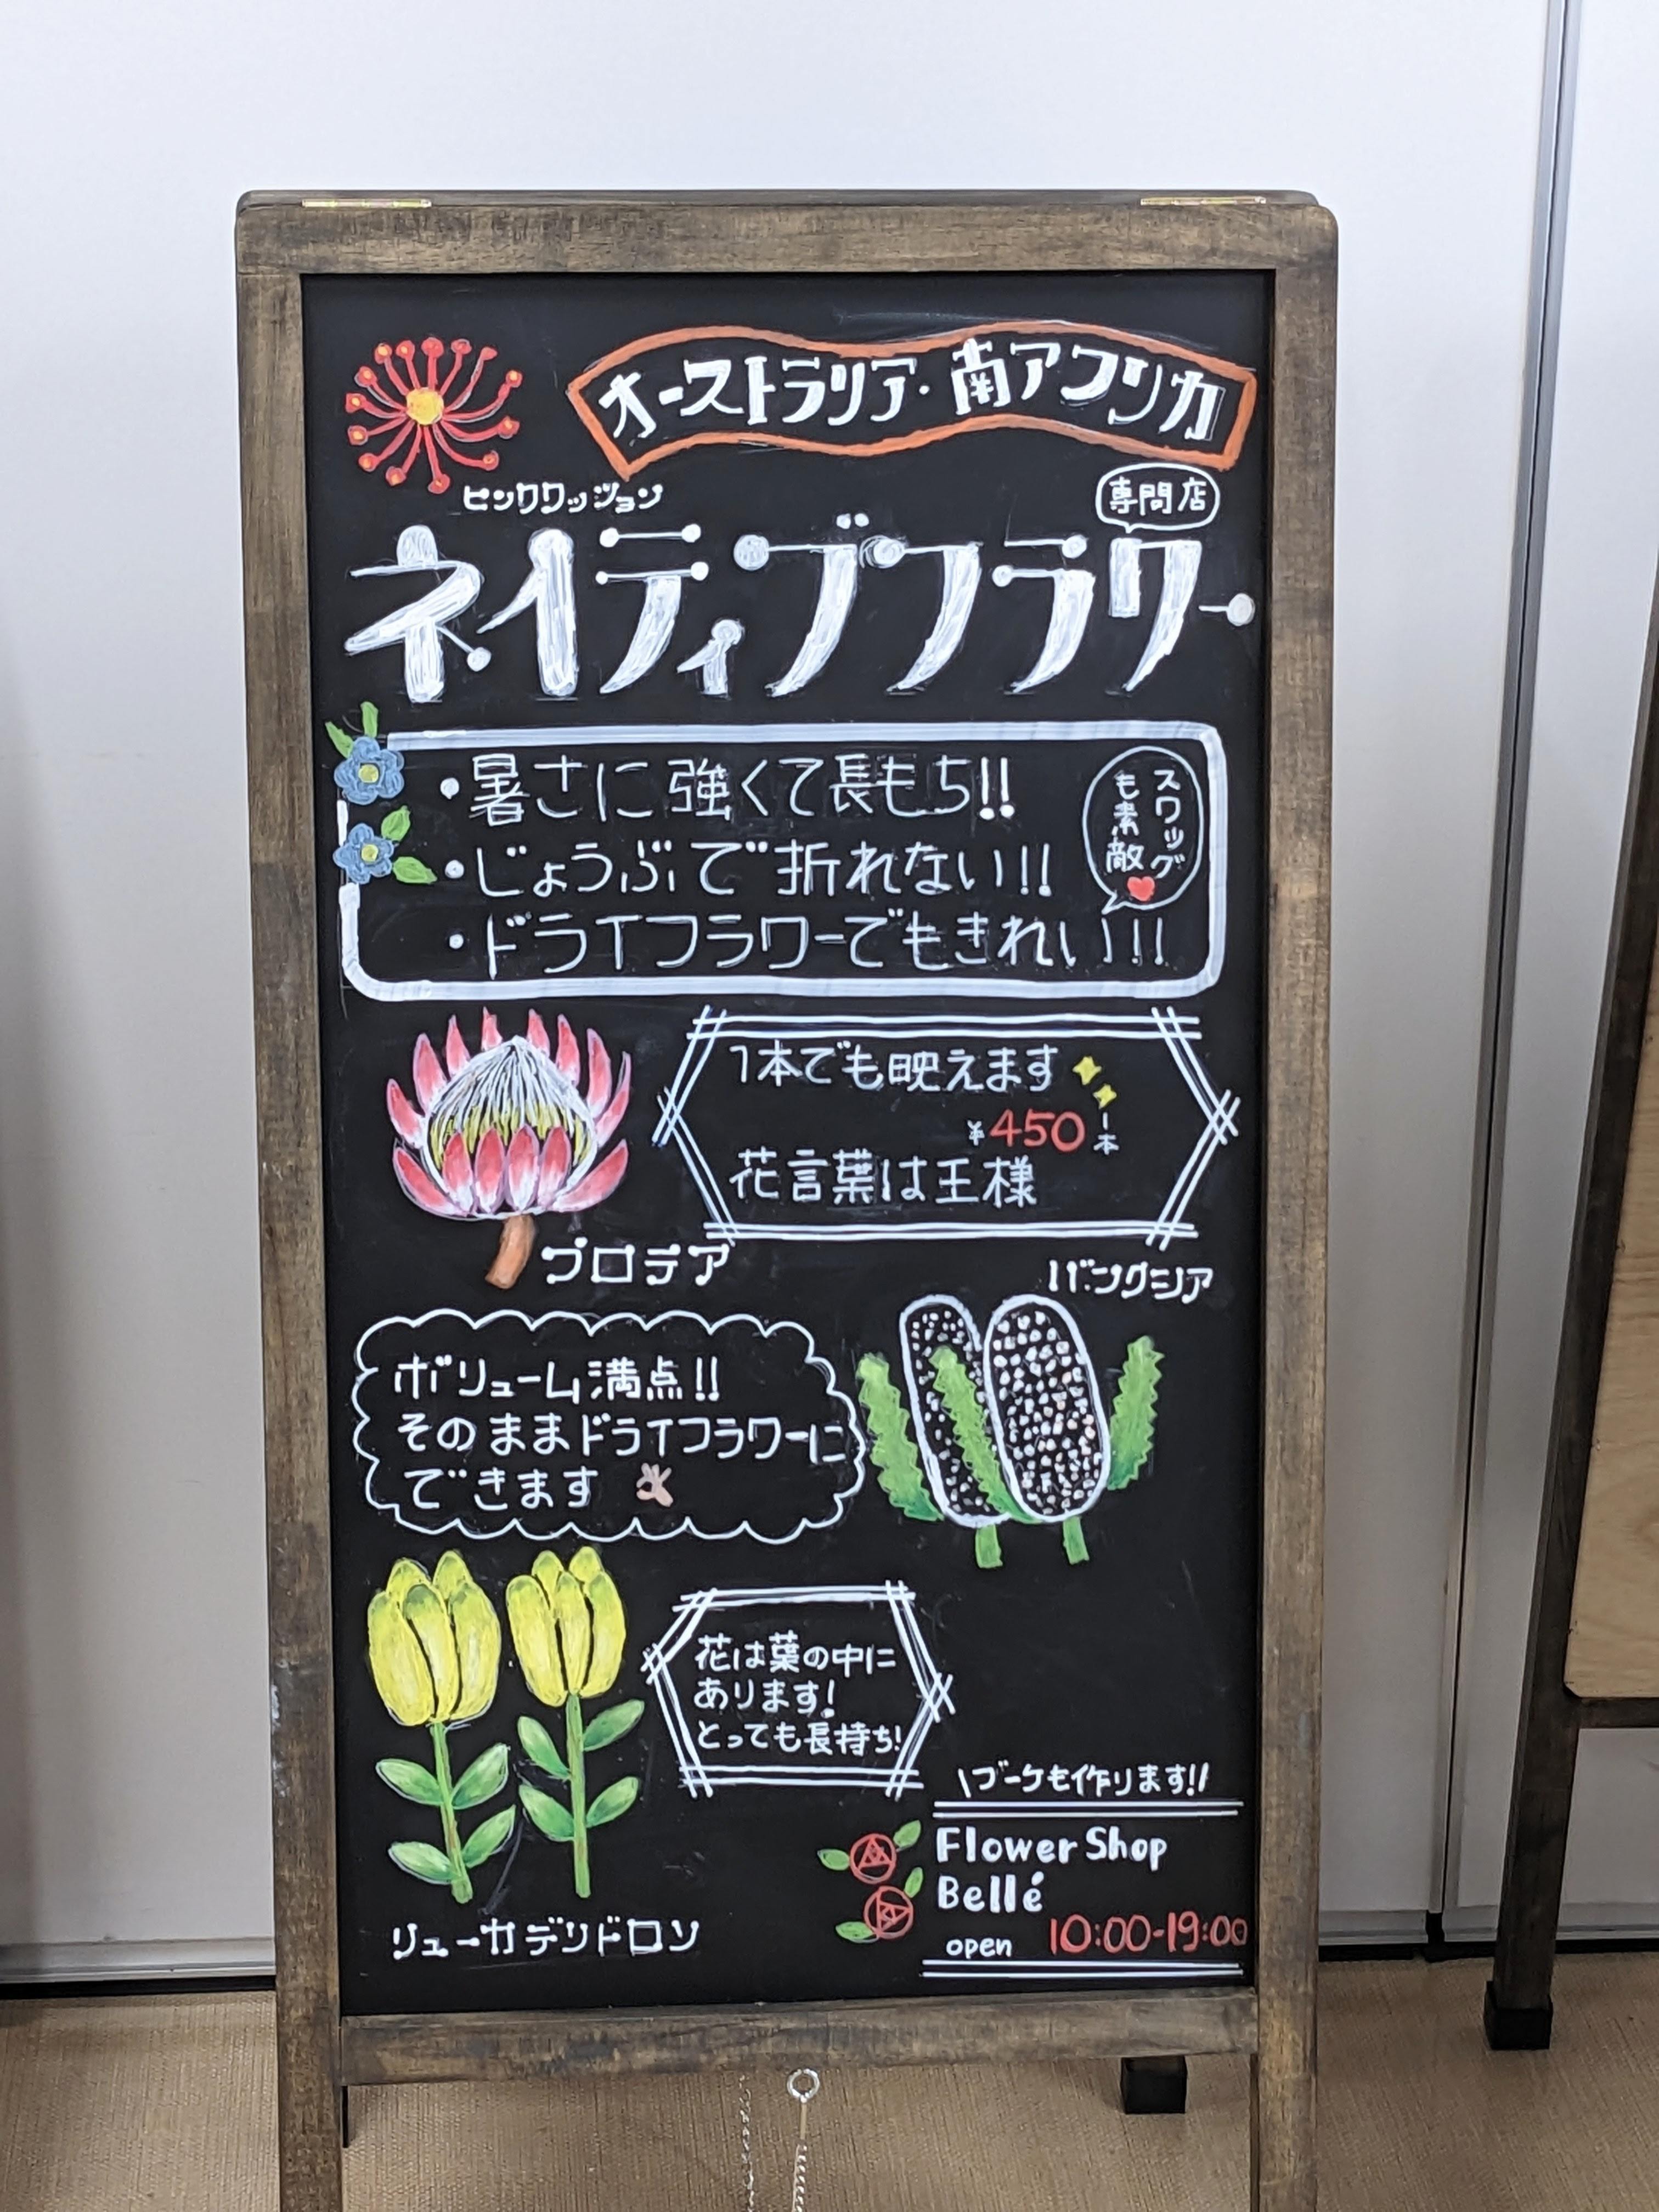 オーストラリア・南アフリカ
ピンクワッション
専門店
ネイティブフラワー
・暑さに強くて長もち!!
・じょうぶで折れない!!
・ドライフラワーでもきれい!!
スワッグ
も素敵
1本でも映えます
¥450 1本
花言葉は王様
プロテア
バンクシア
ボリューム満点!!
そのままドライフラワーに
できます
花は葉の中に
あります!
とっても長持ち!
リューカデンドロン
\ブーケも作ります!!/
Flower Shop
Bellé
open 10:00-19:00